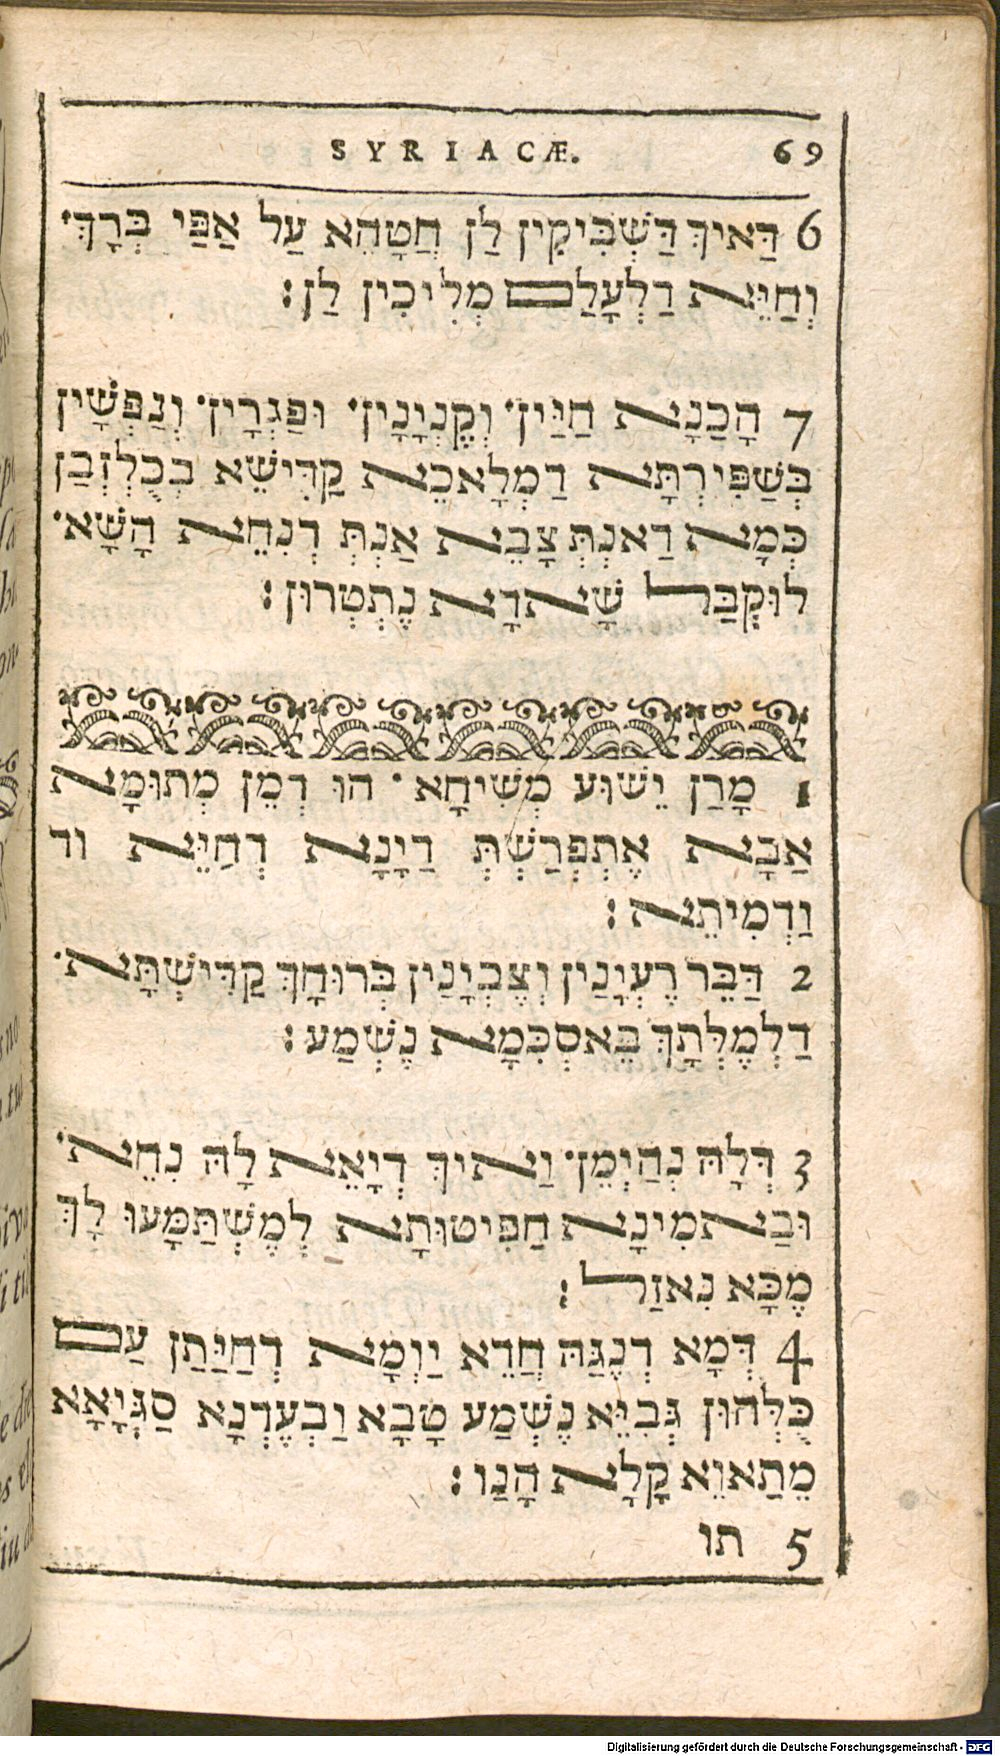 SYRIACÆ. 69
6 דַּאיךְ דַּשְׁבִּיקִין לַן חֲטָהֵא עַל אַפַּי בְּרָךְ·
וְחַיֵּא דַלְעָלַם מְלִיכִין לַן:
7 הָכַנָא חַיַּין· וְקֶנְיָנָין· וּפַגְרָין· וְנַפְשָׁין
בְּשַׁפִּירְתָּא דַמְלָאכֵא קַדִּישֵׁא בְּכֻלְזְבַן
כְּמָא דַאנְתְּ צָבֵא אַנְתְּ דְּנִחֵא הָשָׁא·
לוּקְבַּל שָׁאדָא נֶתְטְרוּן:
1 מָרַן יֵשׁוּע מְשִׁיחָא· הוּ דְמֵן מְתוּמָא
אַבָּא אֶתְפְּרַשְׁתְּ דַּיָנָא דְחַיֵּא וד
וַדְמִיתֵא:
2 דַּבֵּר רֶעְיָנַין וְצֶבְיָנַין בְּרוּחָךְ קַדִּישְׁתָּא·
דַלְמֶלְּתָךְ בֵּאסְכִּמָא נֶשְׁמַע:
3 דְּלָהּ נְהַיְמֵן· וַאיךְ דְּיָאֵא לָהּ נִחֵא·
וּבַאמִינָא חַפִּיטוּתָא לְמֶשְׁתַּמָּעוּ לָךְ
מֶכָּא נִאזַל:
4 דְּמָא דְנֶגַּהּ חֲדֵא יַוְמָא דְחַיַּתַן עַם
כֻּלְּהוּן גְּבִיֵּא נֶשְׁמַע טָבָא וַבְעֶדְנָא סַגְּיָאָא
מֵתַאוֵא קָלָא הָנַו:
5 תו
Digitalisierung gefördert durch die Deutsche Forschungsgemeinschaft - DFG